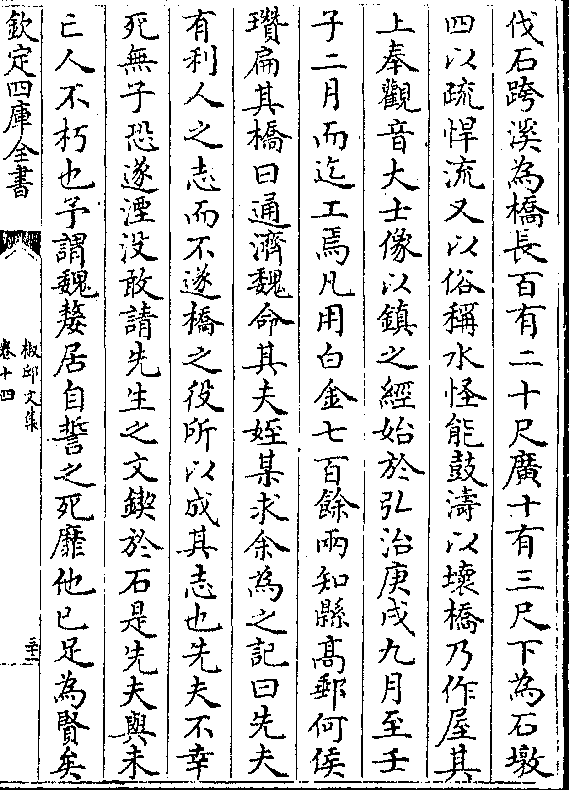 伐石跨溪為橋長百有二十尺廣十有三尺下為石墩
四以疏悍流又以俗稱水怪能鼓濤以壞橋乃作屋其
上奉觀音大士像以鎮之經始於弘治庚戌九月至壬
子二月而迄工焉凡用白金七百餘兩知縣高郵何侯
瓚扁其橋曰通濟魏命其夫姪某求余為之記曰先夫
有利人之志而不遂橋之役所以成其志也先夫不幸
死無子恐遂湮没敢請先生之文鍥於石是先夫與未
亡人不朽也予謂魏嫠居自誓之死靡他已足為賢矣
欽定四庫全書
椒邱文集
卷十四
三十二